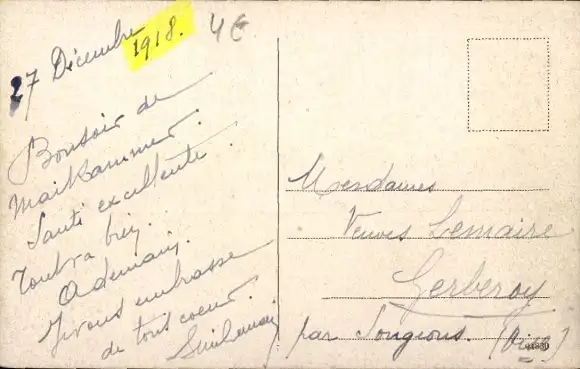 27 Décembre
1918.
4€
Bonsoir de
Maikammer.
Santé excellente.
Tout va bien.
A demain.
Je vous embrasse
de tout coeur.
Mesdames
Veuves Lemaire
Gerberoy
par Songeons. (Oise)